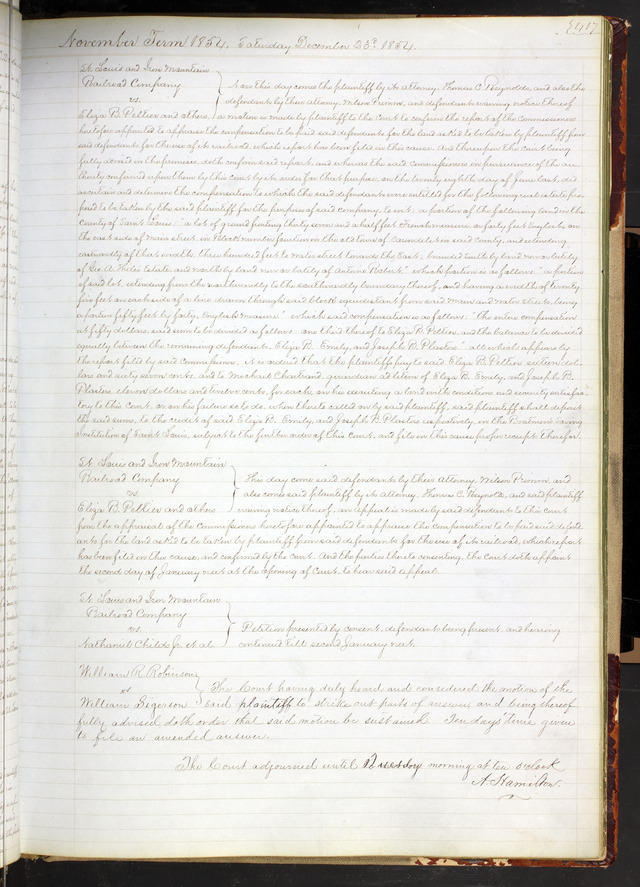 417
November Term 1854. Saturday December 23d. 1854.
St. Louis and Iron Mountain
Railroad Company
vs.
Eliza B. Peltier and others.
Now this day comes the plaintiff by its attorney Thomas C. Reynolds, and also the
defendants by their attorney Wilson Primm, and defendants waiving notice thereof
a motion is made by plaintiff to the Court to confirm the report of the Commissioners
heretofore appointed to appraise the compensation to be paid said defendants for the land asked to be taken by plaintiff from
said defendants for the use of its railroad, which report has been filed in this cause. And thereupon the court being
fully advised in the premises, doth confirm said report, and whereas the said commissioners in pursuance of the au-
thority conferred upon them by this court by its order for that purpose, on the twenty eighth day of June last, did
ascertain and determine the compensation to which the said defendants were entitled for the following real estate pro-
posed to be taken by the said plaintiff for the purposes of said company, to wit: a portion of the following land in the
County of Saint Louis: "a lot of ground fronting thirty seven and a half feet French measure, or forty feet English, on
the east side of Main street, in Block number fourteen in the old town of Carondelet in said county, and extending
eastwardly of that width, three hundred feet to Water street towards the East; bounded south by land now or lately
of Geo. A. Hides Estate and north by land now or lately of Antoine Robert" which portion is as follows: "a portion
of said lot, extending from the northwardly to the southwardly boundary thereof, and having a width of twenty
five feet on each side of a line drawn through said block equidistant from said Main and Water streets, being
a portion fifty feet by forty, English measure." which said compensation is as follows: "the entire compensation
at fifty dollars, said sum to be divided as follows: one third thereof to Eliza B. Peltier, and the balance to be divided
equally between the remaining defendants, Eliza B. Emily, and Joseph B. Plastrie" all which appears by
the report filed by said Commissioners, it is ordered that the plaintiff pay to said Eliza B. Peltier sixteen dol-
lars and sixty seven cents, and to Michael Chartrand, guardian ad litem of Eliza B. Emily, and Joseph B.
Plastrie, eleven dollars and twelve cents, for each, on his executing a bond with conditions and security satisfac-
tory to this Court, or on his failure so to do, when thereto called on by said plaintiff, said plaintiff shall deposit
the said sums, to the credit of said Eliza B. Emily, and Joseph B. Plastrie respectively, in the Boatmens saving
Institution of Saint Louis, subject to the further order of this Court, and file in this cause proper receipts therefor.
St. Louis and Iron Mountain
Railroad Company
vs.
Eliza B. Peltier and others
This day come said defendants by their attorney Wilson Primm, and
also comes said plaintiff by its attorney, Thomas C. Reynolds, and said plaintiff
waiving notice thereof, an appeal is made by said defendants to this court
from the appraisal of the Commissioners heretofore appointed to appraise the compensation to be paid said defend-
ants for the land asked to be taken by plaintiff from said defendants for the use of its railroad, which report
has been filed in this cause, and confirmed by the court. And the parties thereto consenting, the Court doth appoint
the second day of January next at the opening of Court, to hear said appeal.
St. Louis and Iron Mountain
Railroad Company
vs.
Nathaniel Childs Jr. et al.
Petition presented by consent, defendant being present, and hearing
continued till second January next.
William R. Robinson
vs
William Sigerson
The Court having duly heard and considered the motion of the
said plaintiff to strike out parts of answer and being thereof
fully advised doth order that said motion be sustained Ten days time given
to file an amended answer.
The Court adjourned until Tuesday morning at ten o'clock
A. Hamilton.